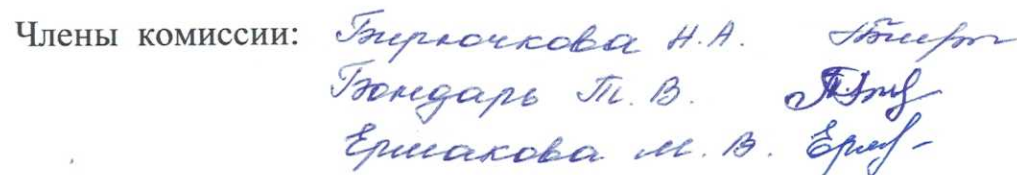 Члены комиссии: Бирючкова Н.А.
Бондарь Т. В.
Ермакова М. В.